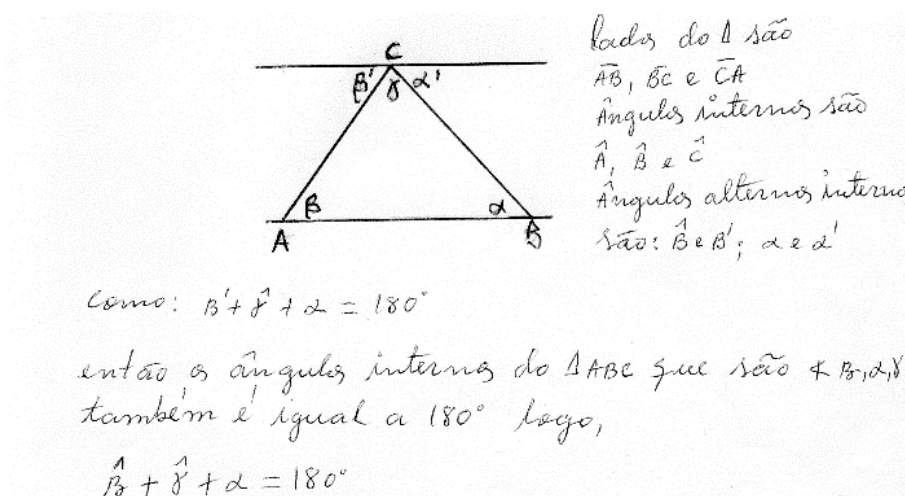 C
β' γ α'
β α
A B
lados do Δ são
A̅B̅, B̅C̅ e C̅A̅
Ângulos internos são
Â, B̂ e Ĉ
Ângulos alternos interno
são: β̂ e β'; α e α'
como: β' + γ̂ + α = 180°
então os ângulos internos do ΔABC que são ∢ β, α, γ
também é igual a 180° logo,
β̂ + γ̂ + α = 180°